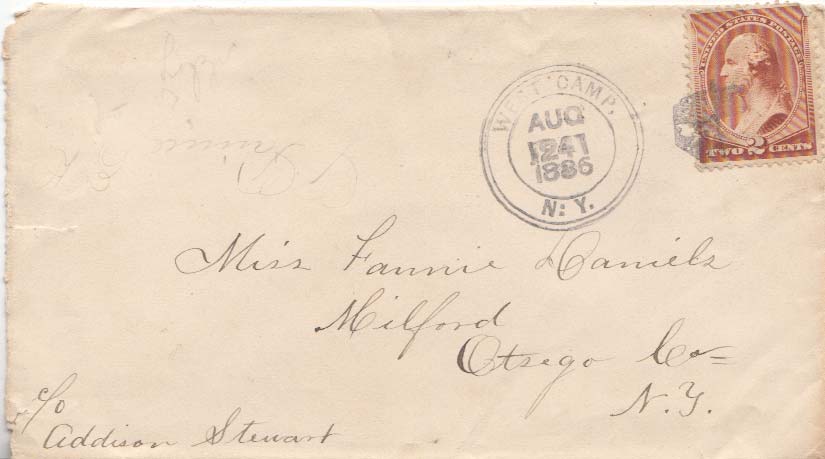 UNITED STATES POSTAGE
TWO 2 CENTS
WEST CAMP,
AUG
24
1886
N. Y.
Miss Fannie Daniels
Milford
Otsego Co=
N.Y.
c/o
Addison Stewart